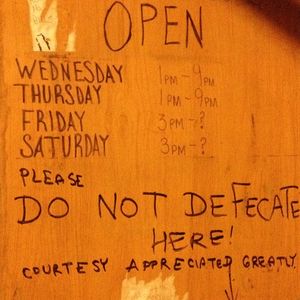 OPEN
WEDNESDAY 1PM-9PM
THURSDAY 1PM-9PM
FRIDAY 3PM-?
SATURDAY 3PM-?
PLEASE
DO NOT DEFECATE
HERE!
COURTESY APPRECIATED GREATLY